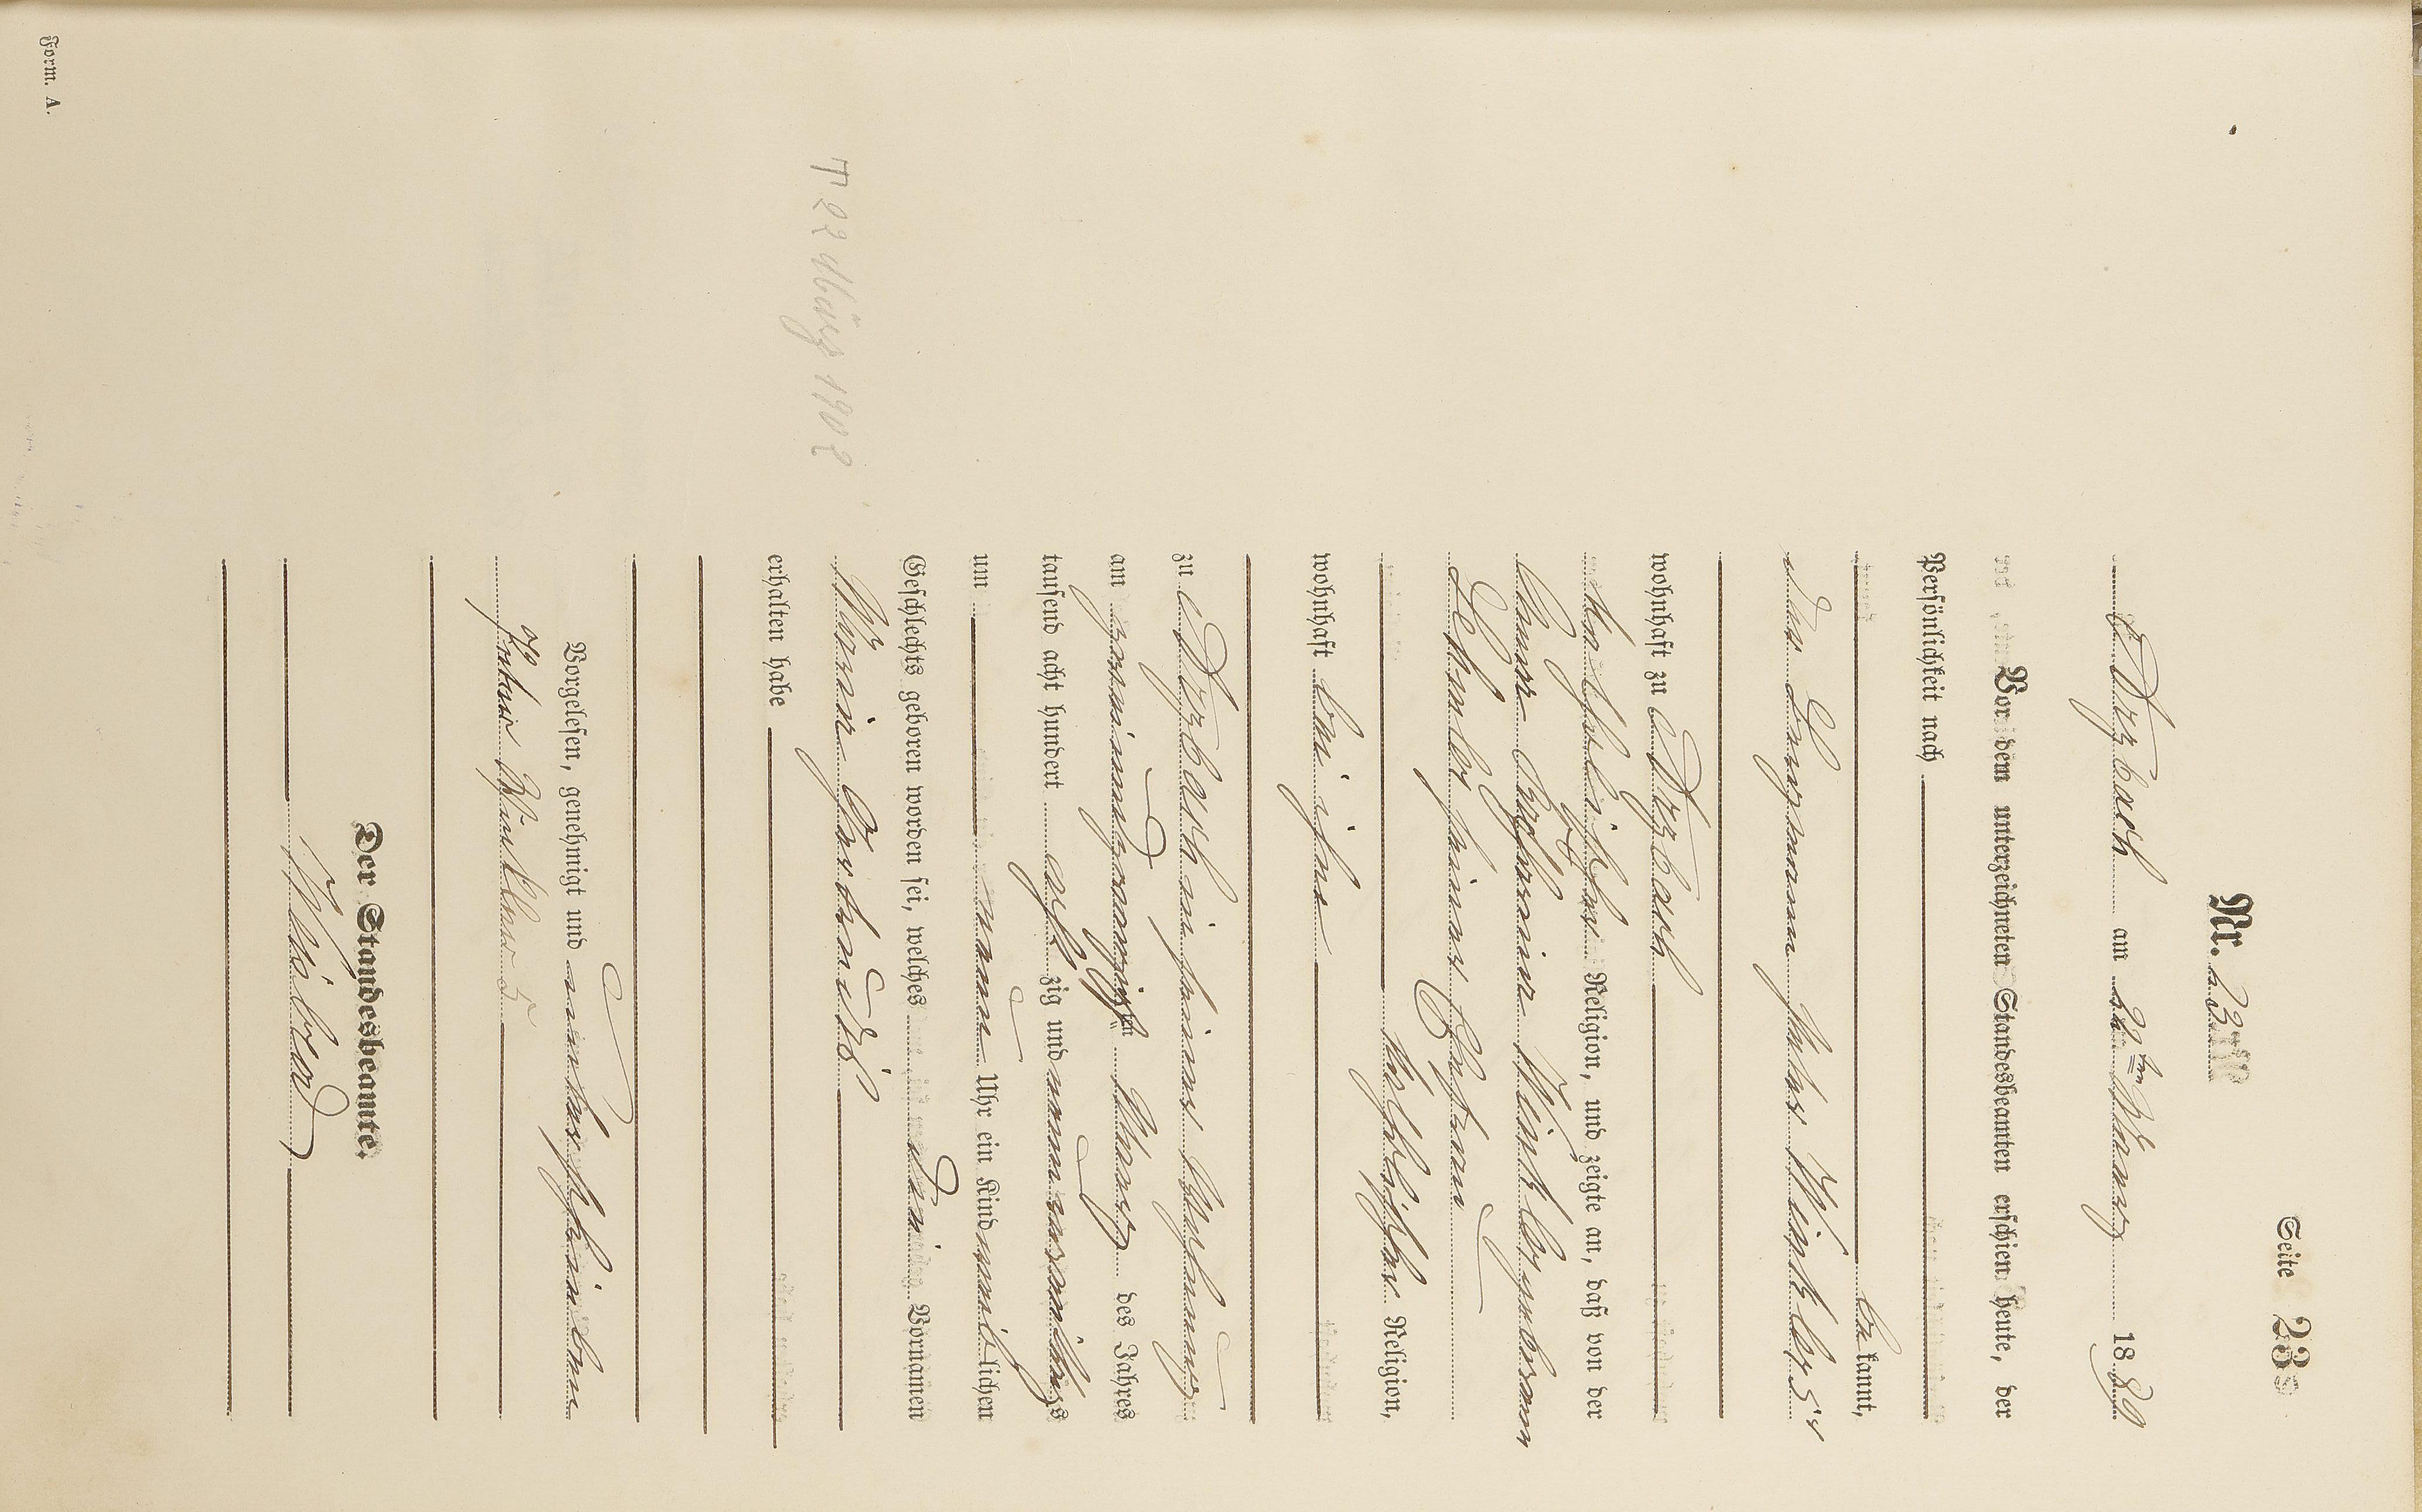 Seite 23
Nr. 23
Orzbach am 22ten Maerz 1889
Vor dem unterzeichneten Standesbeamten erschien heute, der
Persönlichkeit nach
be kannt,
der Bergmann Peter Winkler 5r
wohnhaft zu Orzbach
katholischer Religion, und zeigte an, daß von der
Anna Katharina Winkler geborenen
Lehmler seiner Ehefrau
katholischer Religion,
wohnhaft bei ihm
zu Orzbach in seiner Wohnung
am zweiundzwanzigsten Maerz des Jahres
tausend acht hundert acht zig und neun vormittags
um neun Uhr ein Kind weib lichen
Geschlechts geboren worden sei, welches die Vornamen
Maria Gertrudis
erhalten habe
† 22 März 1902
Vorgelesen, genehmigt und unterschrieben
Peter Winkler 5
Der Standesbeamte.
Form. A.